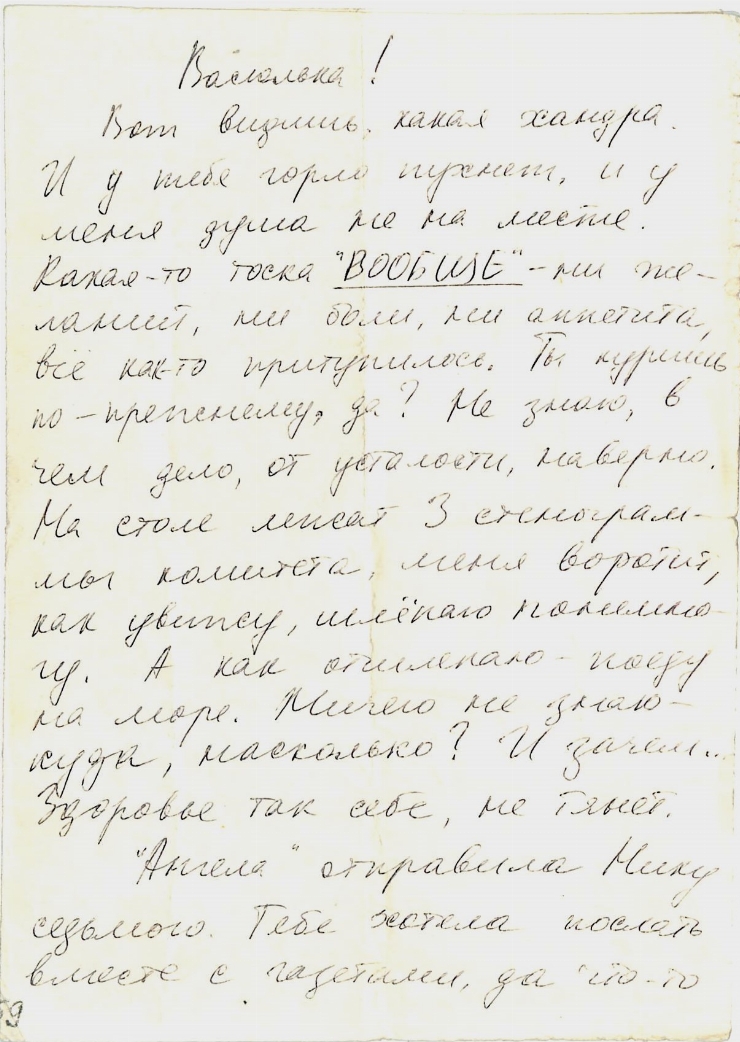 Васюлька!
Вот видишь, какая хандра.
И у тебе горло пухнет, и у
меня душа не на месте.
Какая-то тоска "ВООБЩЕ" - ни же-
ланий, ни боли, ни аппетита,
всё как-то притупилось. Ты куришь
по-прежнему, да? Не знаю, в
чем дело, от усталости, наверно.
На столе лежат 3 стенограм-
мы комитета, меня воротит,
как увижу, шлёпаю понемно-
гу. А как отшлепаю - поеду
на море. Ничего не знаю -
куда, насколько? И зачем...
Здоровье так себе, не тянет.
"Ангела" отправила Нику
седьмого. Тебе хотела послать
вместе с газетами, да что-то